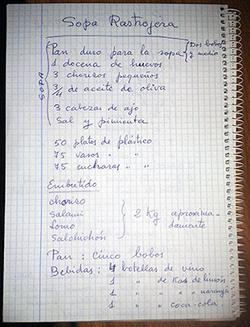 Sopa Rastrojera
SOPA
Pan duro para la sopa } Dos bobos y medio
1 docena de huevos
3 chorizos pequeños
3/4 de aceite de oliva
3 cabezas de ajo
Sal y pimienta
50 platos de plástico
75 vasos " "
75 cucharas " "
Embutido
chorizo
Salami
Lomo
Salchichón
} 2 Kg aproximadamente
Pan : Cinco bobos
Bebidas: 4 botellas de vino
1 " de Kas de limón
1 " " " naranja
1 " " coca-cola.